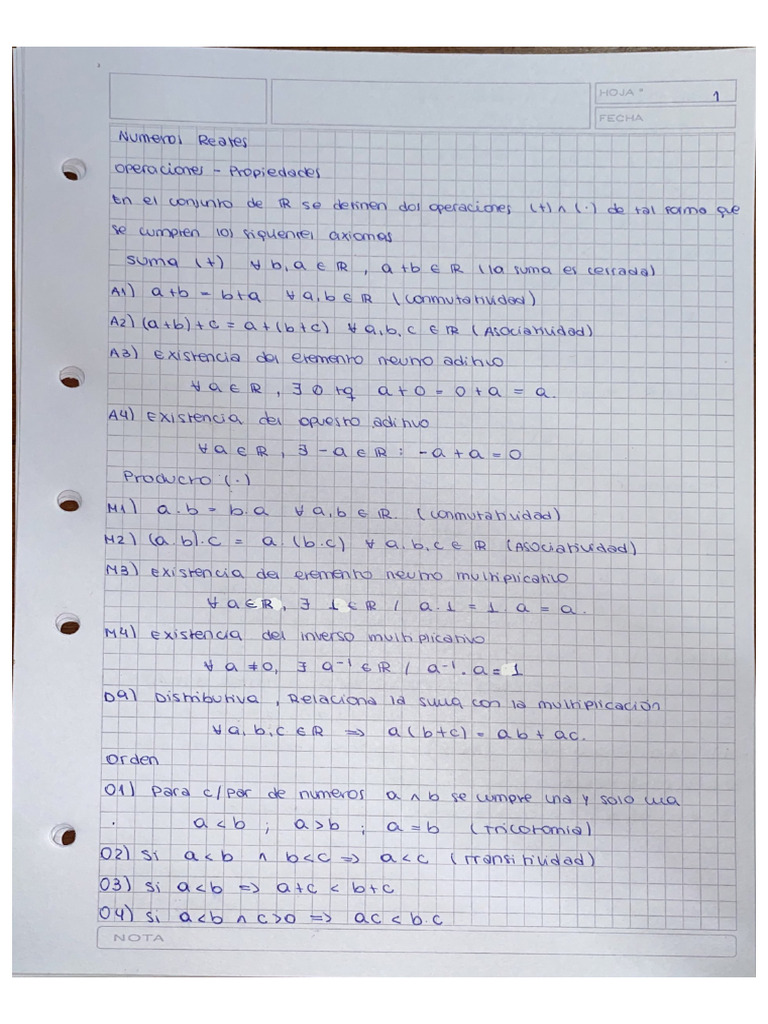 HOJA * 1
FECHA
Numeros Reales
Operaciones - Propiedades
En el conjunto de ℝ se definen dos operaciones (+) ∧ (·) de tal forma que
se cumplen los siguientes axiomas
Suma (+) ∀ b, a ∈ ℝ, a+b ∈ ℝ (la suma es cerrada)
A1) a+b = b+a ∀ a, b ∈ ℝ (Conmutatividad)
A2) (a+b)+c = a+(b+c) ∀ a, b, c ∈ ℝ (Asociatividad)
A3) Existencia del elemento neutro aditivo
∀ a ∈ ℝ, ∃ 0 tq a+0 = 0+a = a.
A4) Existencia del opuesto aditivo
∀ a ∈ ℝ, ∃ -a ∈ ℝ : -a+a = 0
Producto (·)
M1) a.b = b.a ∀ a, b ∈ ℝ. (Conmutatividad)
M2) (a.b).c = a.(b.c) ∀ a.b,c ∈ ℝ (Asociatividad)
M3) Existencia del elemento neutro multiplicativo
∀ a ∈ ℝ, ∃ 1 ∈ ℝ / a.1 = 1.a = a.
M4) Existencia del inverso multiplicativo
∀ a ≠ 0, ∃ a⁻¹ ∈ ℝ / a⁻¹.a = 1
Da) Distributiva, Relaciona la suma con la multiplicación
∀ a, b, c ∈ ℝ ⇒ a(b+c) = ab + ac.
Orden
O1) Para c/par de numeros a ∧ b se cumple una y solo una
. a < b ; a > b ; a = b (Tricotomía)
O2) Si a<b ∧ b<c ⇒ a<c (Transitividad)
O3) Si a<b ⇒ a+c < b+c
O4) Si a<b ∧ c>0 ⇒ ac < b.c
NOTA